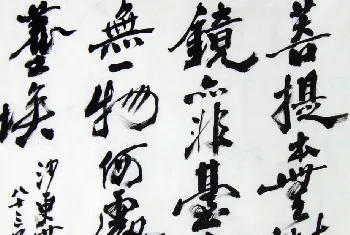 菩提本無樹
鏡亦非臺
無一物何處
塵埃
沙更世
八十三